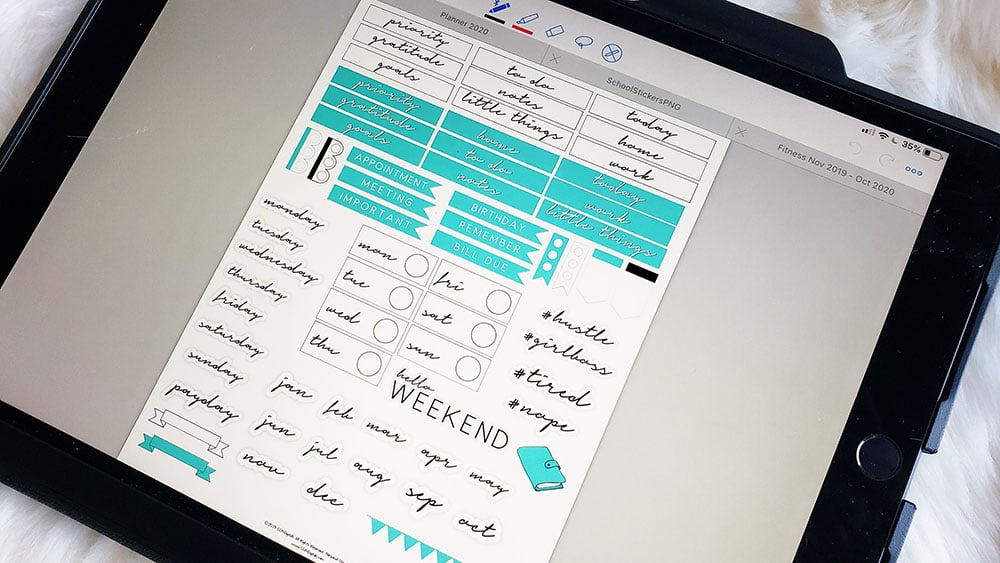 Planner 2020
SchoolStickersPNG
Fitness Nov 2019 - Oct 2020
35%
priority
gratitude
goals
to do
notes
little things
today
home
work
priority
gratitude
goals
home
to do
notes
today
work
little things
APPOINTMENT
MEETING
IMPORTANT
BIRTHDAY
REMEMBER
BILL DUE
monday
tuesday
wednesday
thursday
friday
saturday
sunday
payday
mon
tue
wed
thu
fri
sat
sun
#hustle
#girlboss
#tired
#nope
hello
WEEKEND
jan
feb
mar
apr
may
jun
jul
aug
sep
oct
nov
dec